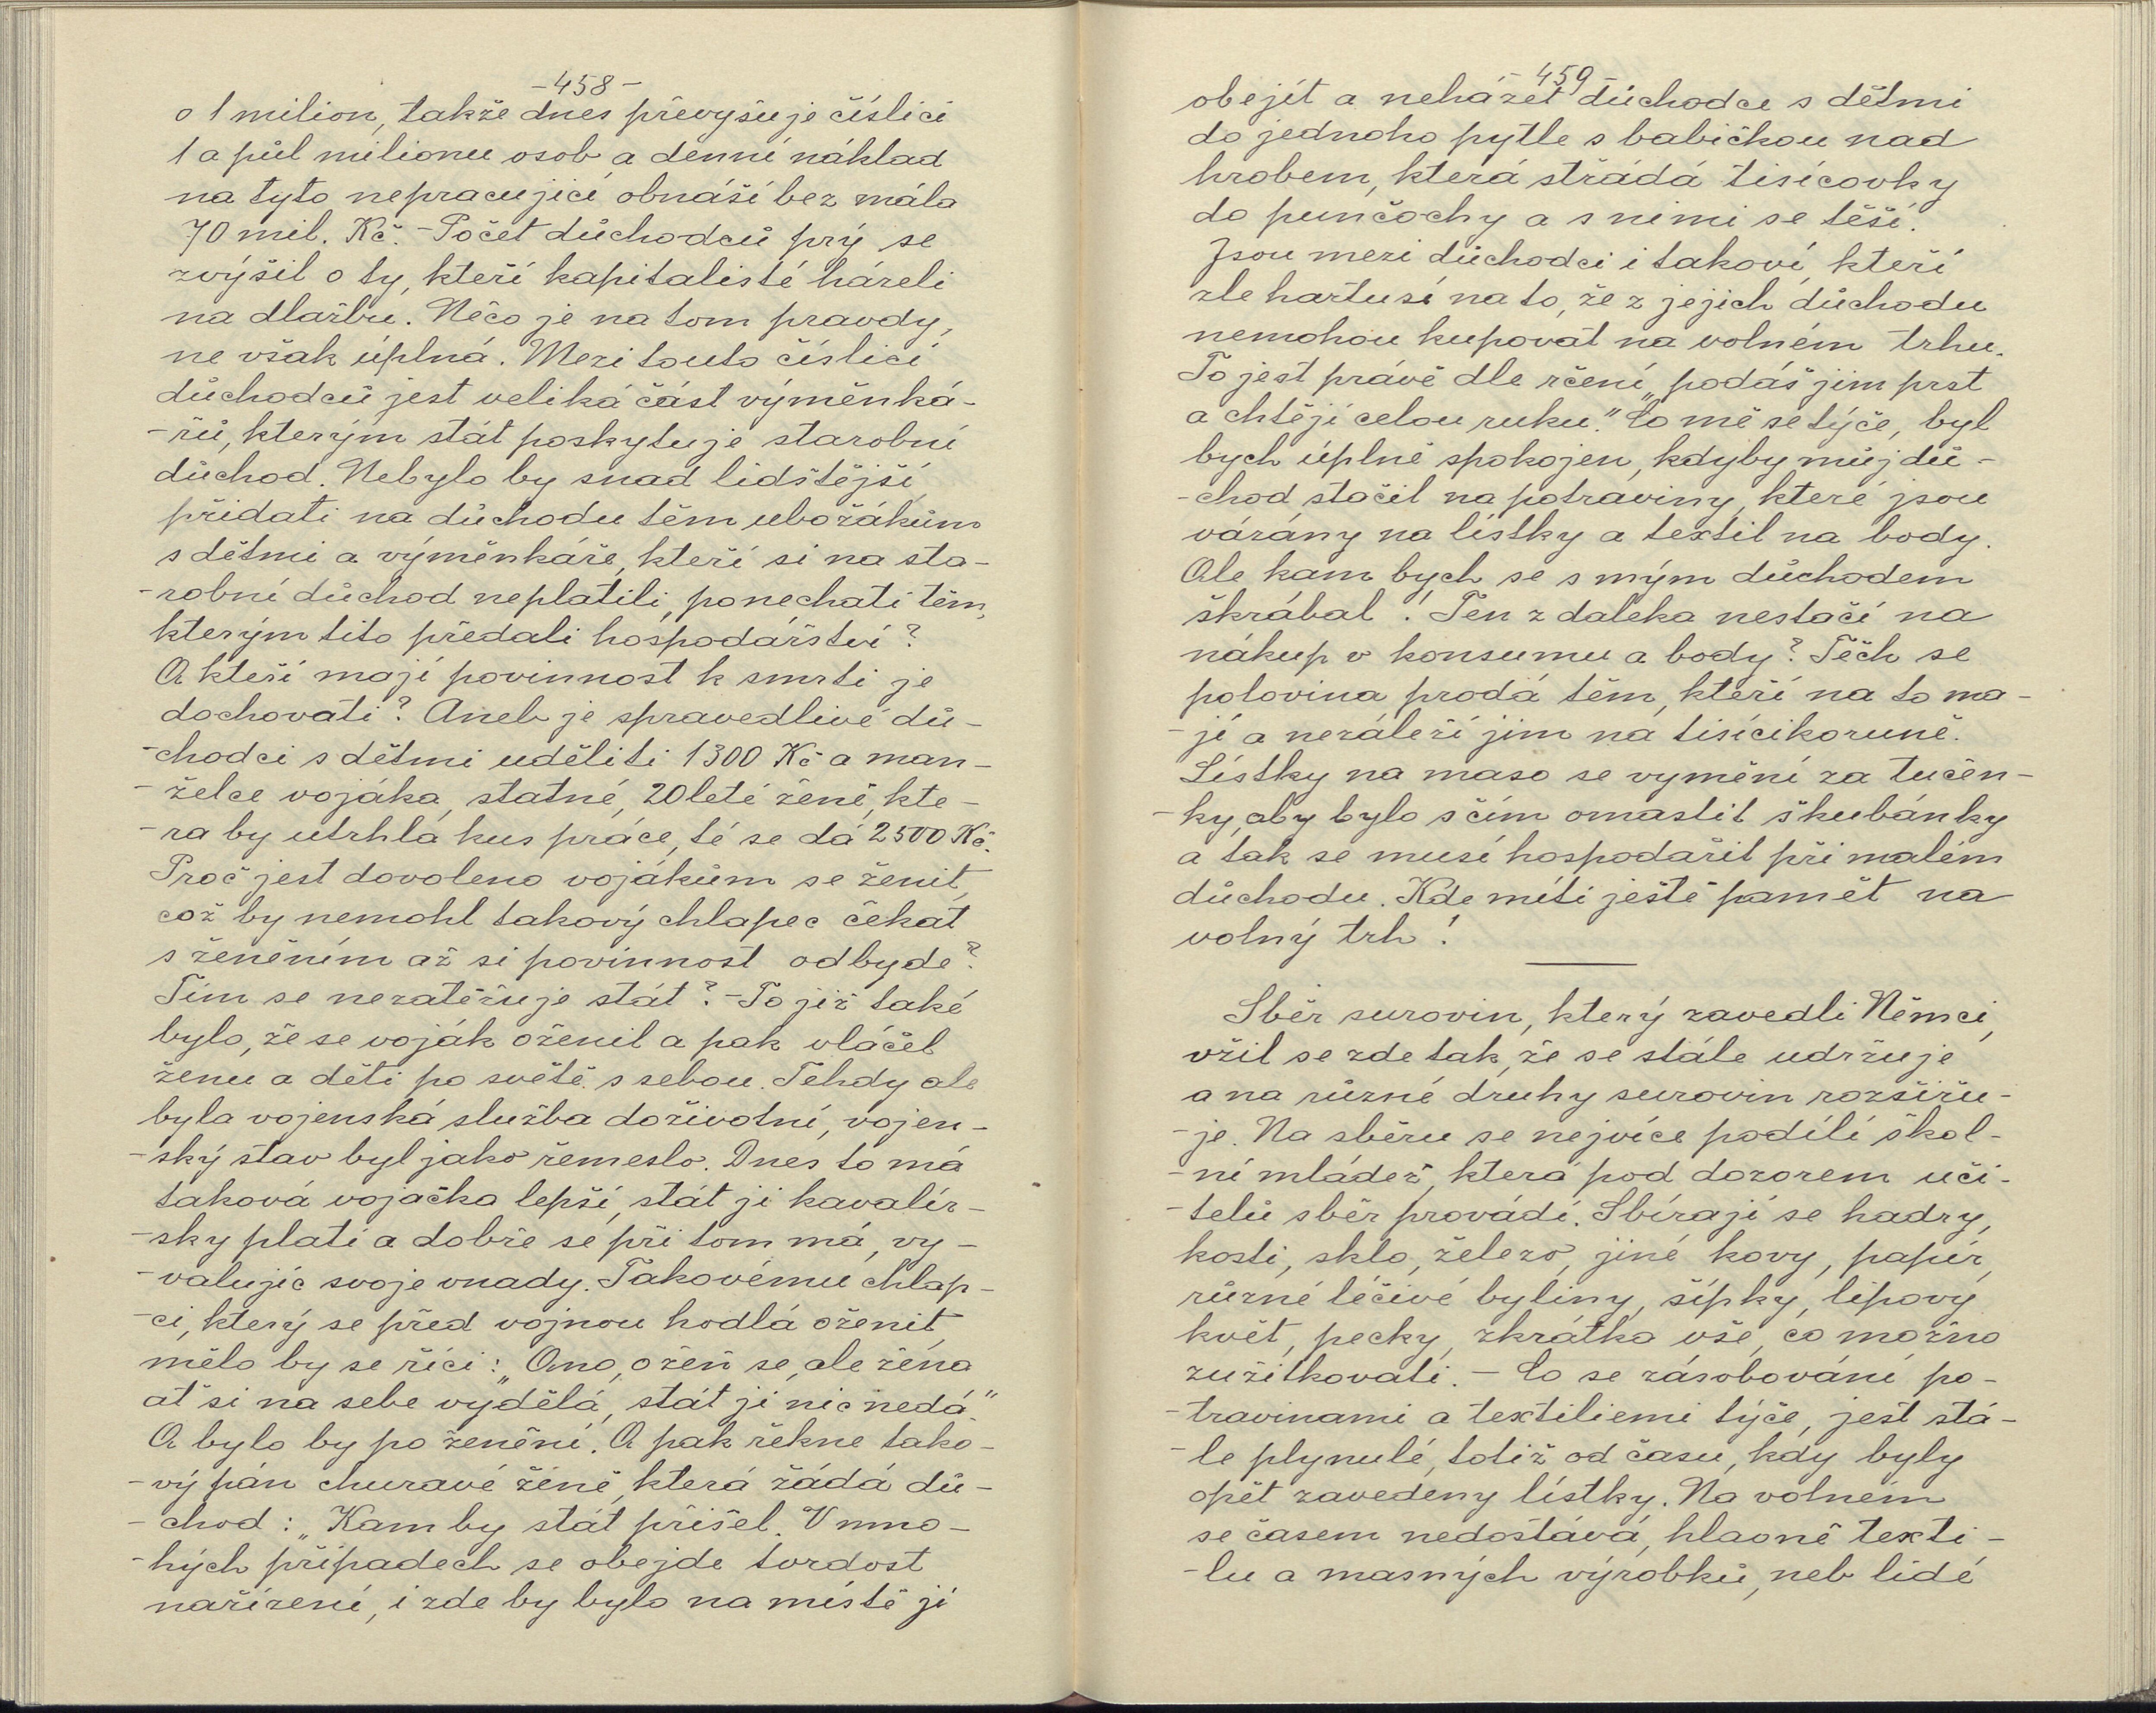 -458-
o 1 milion, takže dnes převyšuje číslici
1 a půl milionu osob a denní náklad
na tyto nepracující obnáší bez mála
70 mil. Kč. - Počet důchodců prý se
zvýšil o ty, kteří kapitalisté házeli
na dlažbu. Něco je na tom pravdy,
ne však úplná. Mezi touto číslicí
důchodců jest veliká část výměnká-
-řů, kterým stát poskytuje starobní
důchod. Nebylo by snad lidštější
přidati na důchodu těm ubožákům
s dětmi a výměnkáře, kteří si na sta-
-robní důchod neplatili, ponechati těm,
kterým tito předali hospodářství?
A kteří mají povinnost k smrti je
dochovati? Aneb je spravedlivé dů-
-chodci s dětmi uděliti 1300 Kč a man-
-želce vojáka, statné, 20leté ženě, kte-
-ra by utrhla kus práce, té se dá 2500 Kč.
Proč jest dovoleno vojákům se ženit,
což by nemohl takový chlapec čekat
s ženěním až si povinnost odbyde?
Tím se nezatěžuje stát? - To již také
bylo, že se voják oženil a pak vláčel
ženu a děti po světě s sebou. Tehdy ale
byla vojenská služba doživotní, vojen-
-ský stav byl jako řemeslo. Dnes to má
taková vojačka lepší, stát ji kavalír-
-sky platí a dobře se při tom má, vy-
-valujíc svoje vnady. Takovému chlap-
-ci, který se před vojnou hodlá oženit,
mělo by se říci: „Ano, ožeň se, ale žena
ať si na sebe vydělá, stát jí nic nedá."
A bylo by po ženění. A pak řekne tako-
-vý pán churavé ženě, která žádá dů-
-chod: „Kam by stát přišel. V mno-
-hých případech se obejde tvrdost
nařízení, i zde by bylo na místě ji
- 459 -
obejít a neházet důchodce s dětmi
do jednoho pytle s babičkou nad
hrobem, která střádá tisícovky
do punčochy a s nimi se těší.
Jsou mezi důchodci i takoví, kteří
zle hartusí na to, že z jejich důchodu
nemohou kupovat na volném trhu.
To jest právě dle rčení „podáš jim prst
a chtějí celou ruku." Co mě se týče, byl
bych úplně spokojen, kdyby můj dů-
-chod stačil na potraviny, které jsou
vázány na lístky a textil na body.
Ale kam bych se s mým důchodem
škrábal! Ten z daleka nestačí na
nákup v konsumu a body? Těch se
polovina prodá těm, kteří na to ma-
-jí a nezáleží jim na tisícikoruně.
Lístky na maso se vymění za tučen-
-ky, aby bylo s čím omastit škubánky
a tak se musí hospodařit při malém
důchodu. Kde míti ještě paměť na
volný trh!
Sběr surovin, který zavedli Němci,
vžil se zde tak, že se stále udržuje
a na různé druhy surovin rozšiřu-
-je. Na sběru se nejvíce podílí škol-
-ní mládež, která pod dozorem uči-
-telů sběr provádí. Sbírají se hadry,
kosti, sklo, železo, jiné kovy, papír,
různé léčivé byliny, šípky, lipový
květ, pecky, zkrátka vše, co možno
zužitkovati. - Co se zásobování po-
-travinami a textiliemi týče, jest stá-
-le plynulé, totiž od času, kdy byly
opět zavedeny lístky. Na volném
se časem nedostává, hlavně texti-
-lu a masných výrobků, neb lidé